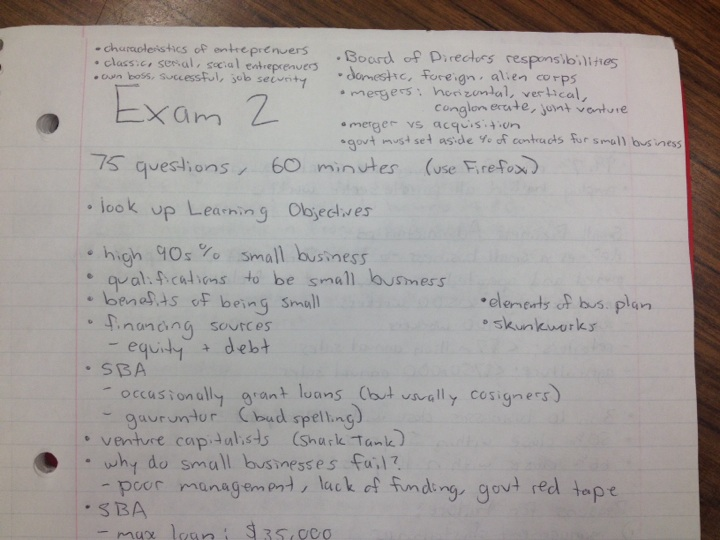 • characteristics of entreprenuers
• classic, serial, social entreprenuers
• own boss, successful, job security
Exam 2
• Board of Directors responsibilities
• domestic, foreign, alien corps
• mergers: horizontal, vertical,
conglomerate, joint venture
• merger vs acquisition
• govt must set aside % of contracts for small business
75 questions, 60 minutes (use Firefox)
• look up Learning Objectives
• high 90s % small business
• qualifications to be small business
• benefits of being small
• financing sources
- equity + debt
• elements of bus. plan
• skunkworks
• SBA
- occasionally grant loans (but usually cosigners)
- gauruntor (bad spelling)
• venture capitalists (Shark Tank)
• why do small businesses fail?
- poor management, lack of funding, govt red tape
• SBA
- max loan: $35,000